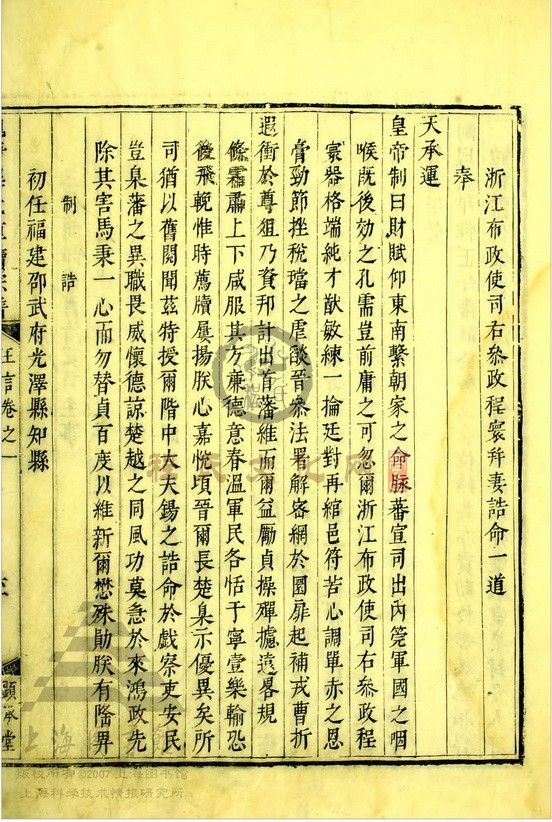 浙江布政使司右參政程寰幷妻誥命一道
奉
天承運
皇帝制曰財賦仰東南繫朝家之命脉蕃宣司出內筦軍國之咽
喉既後効之孔需豈前庸之可忽爾浙江布政使司右叅政程
寰器格端純才猷敏練一掄廷對再綰邑符苦心調單赤之恩
脊勁節挫稅璫之虐燄晉叅法署解密網於圜扉起補戎曹折
遐衝於尊俎乃資邦計出首藩維而爾益勵貞操殫攄遠畧規
條霜肅上下咸服其方亷德意春溫軍民各恬于寧壹樂輸恐
後飛輓惟時薦牘屢揚朕心嘉悅頃晉爾長楚臬示優異矣所
司猶以舊閥聞茲特授爾階中大夫錫之誥命於戲察吏安民
豈臬藩之異職畏威懷德諒楚越之同風功莫急於來鴻政先
除其害馬秉一心而勿替貞百度以維新爾懋殊勛朕有隆畀
制誥
初任福建邵武府光澤縣知縣
王言卷之一
顯承堂
版权所有 ©2007 上海图书馆
上海科学技术情报研究所